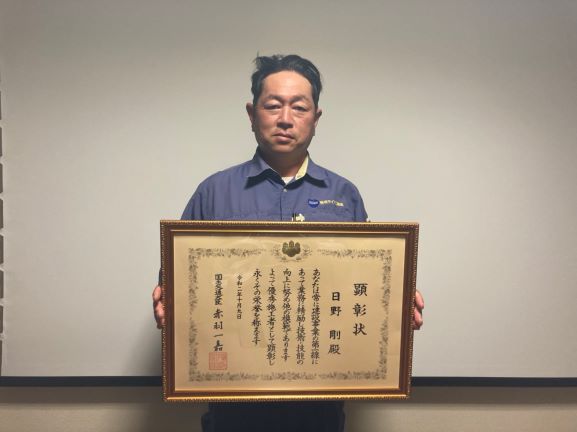 顕彰状
日野 剛 殿
あなたは常に建設事業の第一線に
あって業務に精励し技術・技能の
向上に努め他の模範であります
よって優秀施工者として顕彰し
永くその栄誉を称えます
令和二年十月九日
国土交通大臣 赤羽一嘉